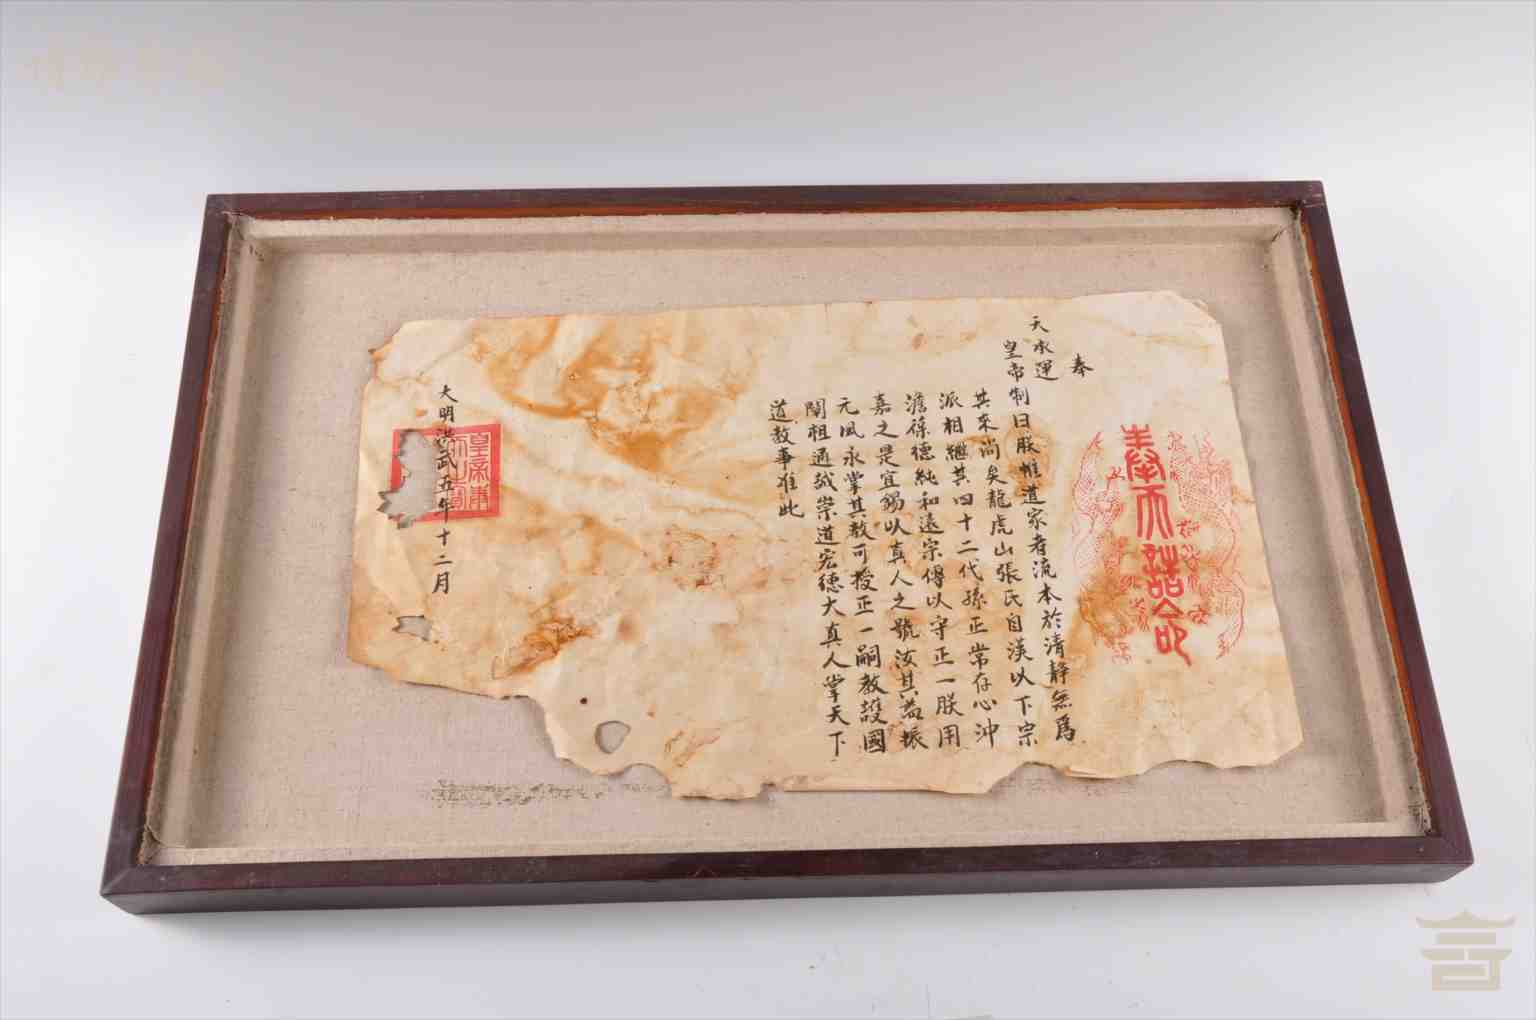 奉天誥命
奉
天承運
皇帝制曰朕惟道家者流本於清静無爲
其來尚矣龍虎山張氏自漢以下宗
派相繼其四十二代孫正常存心沖
澹葆德純和遠宗傳以守正一朕用
嘉之是宜錫以真人之號汝其益振
元風永掌其教可授正一嗣教護國
闡祖通誠崇道宏德大真人掌天下
道教事准此
大明洪武五年十二月